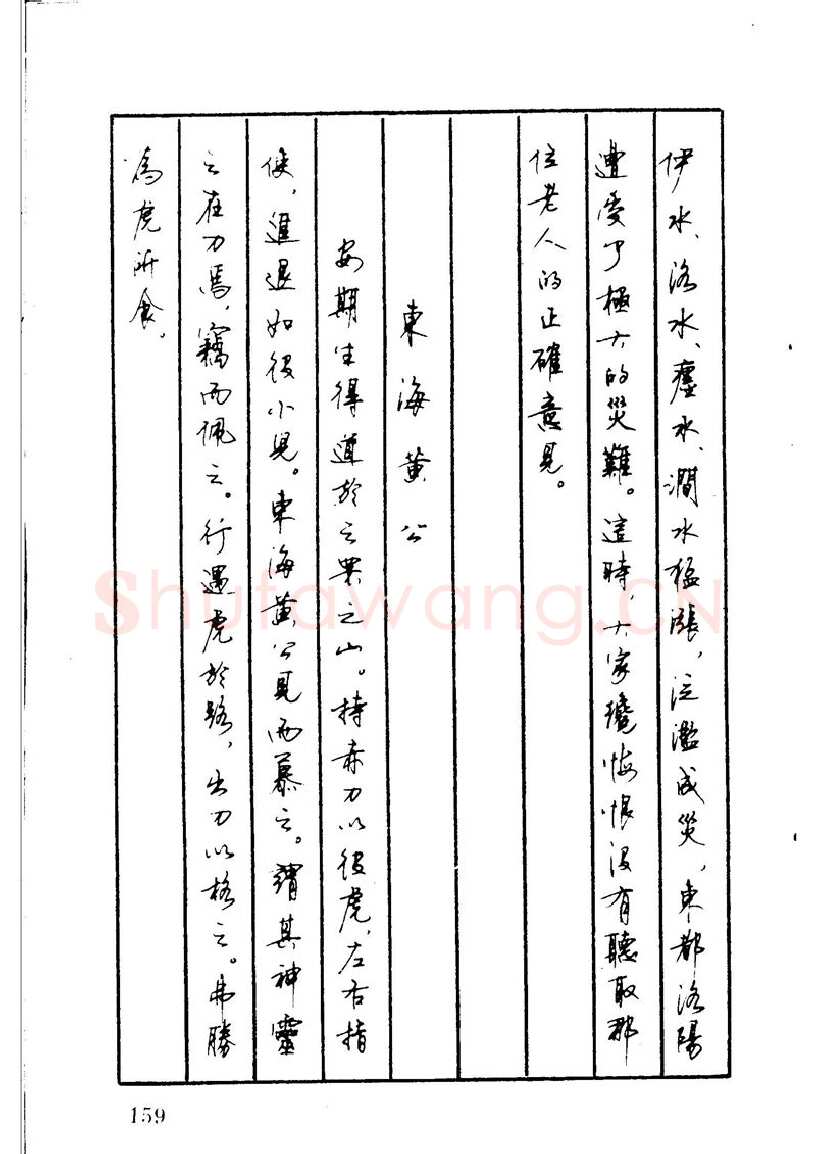 伊水、洛水、瀍水、澗水猛漲，泛濫成災，東都洛陽
遭受了極大的災難。這時，大家纔悔恨沒有聽取那
位老人的正確意見。
東海黃公
安期生得道於之罘之山。持赤刀以役虎，左右指
使，進退如役小兒。東海黃公見而慕之。謂其神靈
之在刀焉，竊而佩之。行遇虎於路，出刀以格之。弗勝
為虎所食。
159
Shufawang.CN